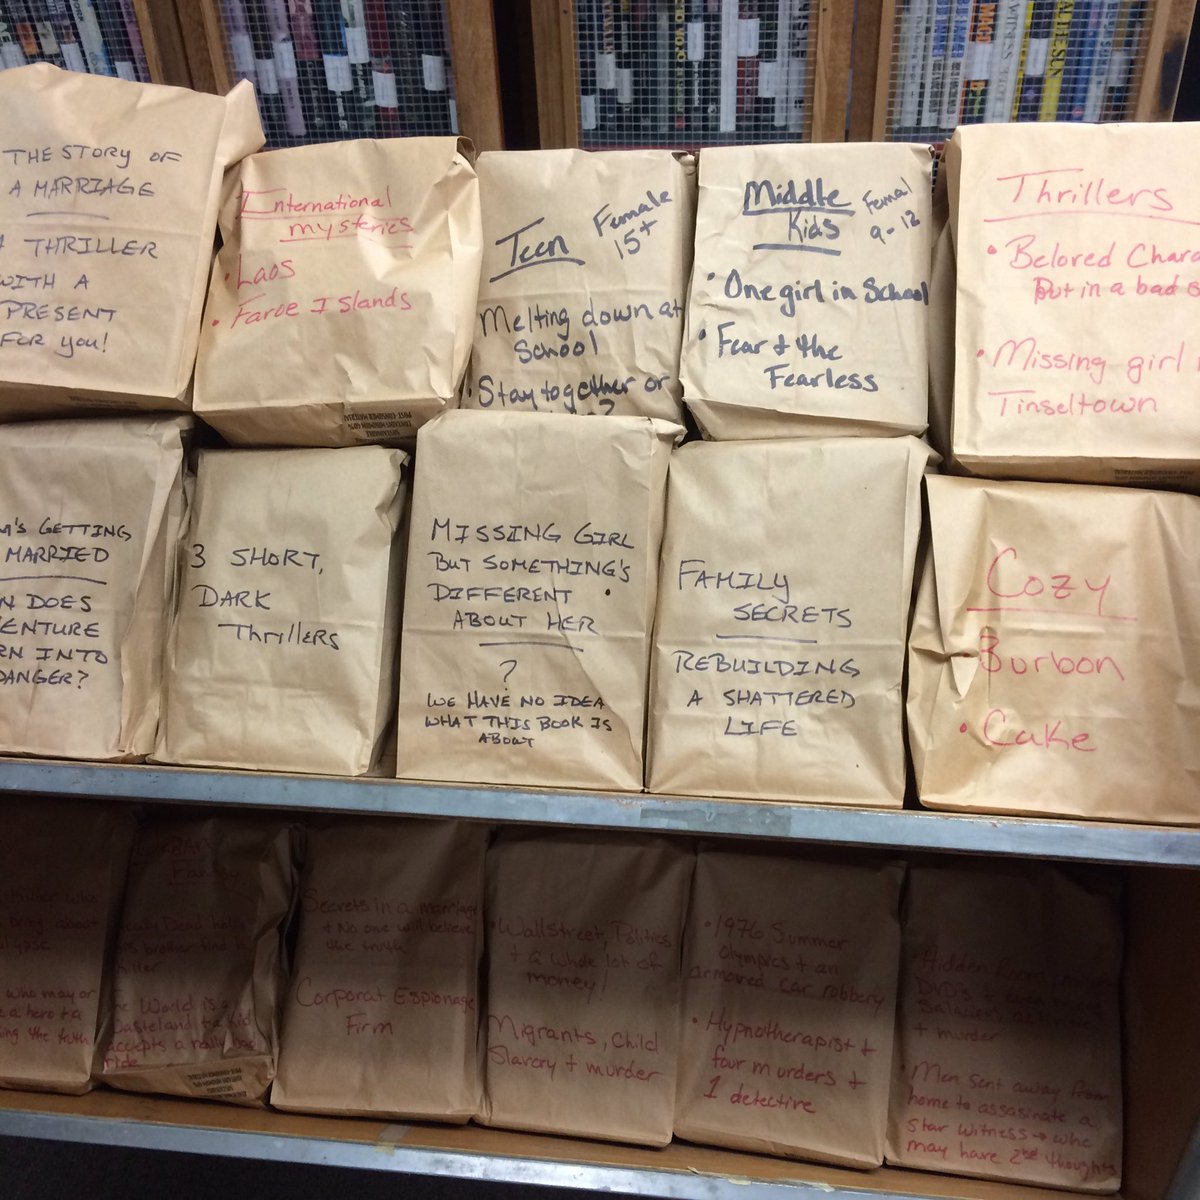 THE STORY OF
A MARRIAGE
THRILLER
WITH A
PRESENT
FOR YOU!
International
mysteries
• Laos
• Faroe Islands
Teen
Female
15+
Melting down at
School
• Stay together or
?
Middle
Kids
9-12
• One girl in School
• Fear & the
Fearless
Thrillers
• Beloved
Put in a bad
• Missing girl
Tinseltown
GETTING
MARRIED
DOES
INTO
DANGER?
3 SHORT,
DARK
THRILLERS
MISSING GIRL
BUT SOMETHING'S
DIFFERENT
ABOUT HER
?
WE HAVE NO IDEA
WHAT THIS BOOK IS
ABOUT
FAMILY
SECRETS
REBUILDING
A SHATTERED
LIFE
Cozy
• Burbon
• Cake
who
bring about
who may or
a hero & a
the truth
Dead
brother find
killer
World is a
Wasteland & a Kid
accepts a really bad
ride
Secrets in a marriage
& No one will believe
the truth
Corporat Espionage
Firm
• Wallstreet, Politics
& a whole lot of
money!
Migrants, Child
Slavery & murder
• 1976 Summer
Olympics & an
armored car robbery
• Hypnotherapist &
four murders &
1 detective
• Hidden
DVD's &
& murder
• Men sent away from
home to assasinate a
Star witness → who
may have 2nd thoughts